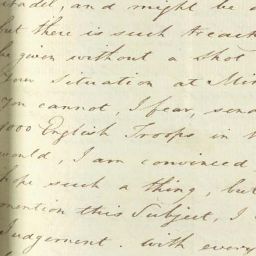 itadel, and might be
but there is such treach
be given without a shot
your situation at Min
you cannot, I fear, send
1000 English Troops in t
world, I am convinced
hope such a thing, but
mention this Subject, I
Judgement. With every